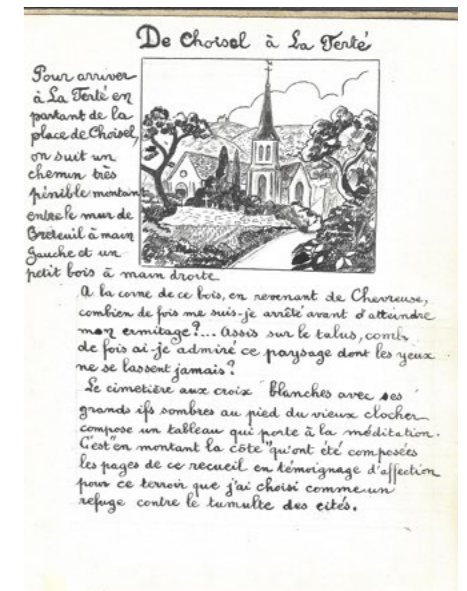 De Choisel à La Ferté
Pour arriver
à La Ferté en
partant de la
place de Choisel,
on suit un
chemin très
pénible montant
entre le mur de
Breteuil à main
gauche et un
petit bois à main droite
A la corne de ce bois, en revenant de Chevreuse,
combien de fois me suis-je arrêté avant d'atteindre
mon ermitage ?... Assis sur le talus, comb.
de fois ai-je admiré ce paysage dont les yeux
ne se lassent jamais ?
Le cimetière aux croix blanches avec ses
grands ifs sombres au pied du vieux clocher
compose un tableau qui porte à la méditation.
C'est "en montant la côte" qu'ont été composées
les pages de ce recueil en témoignage d'affection
pour ce terroir que j'ai choisi comme un
refuge contre le tumulte des cités.